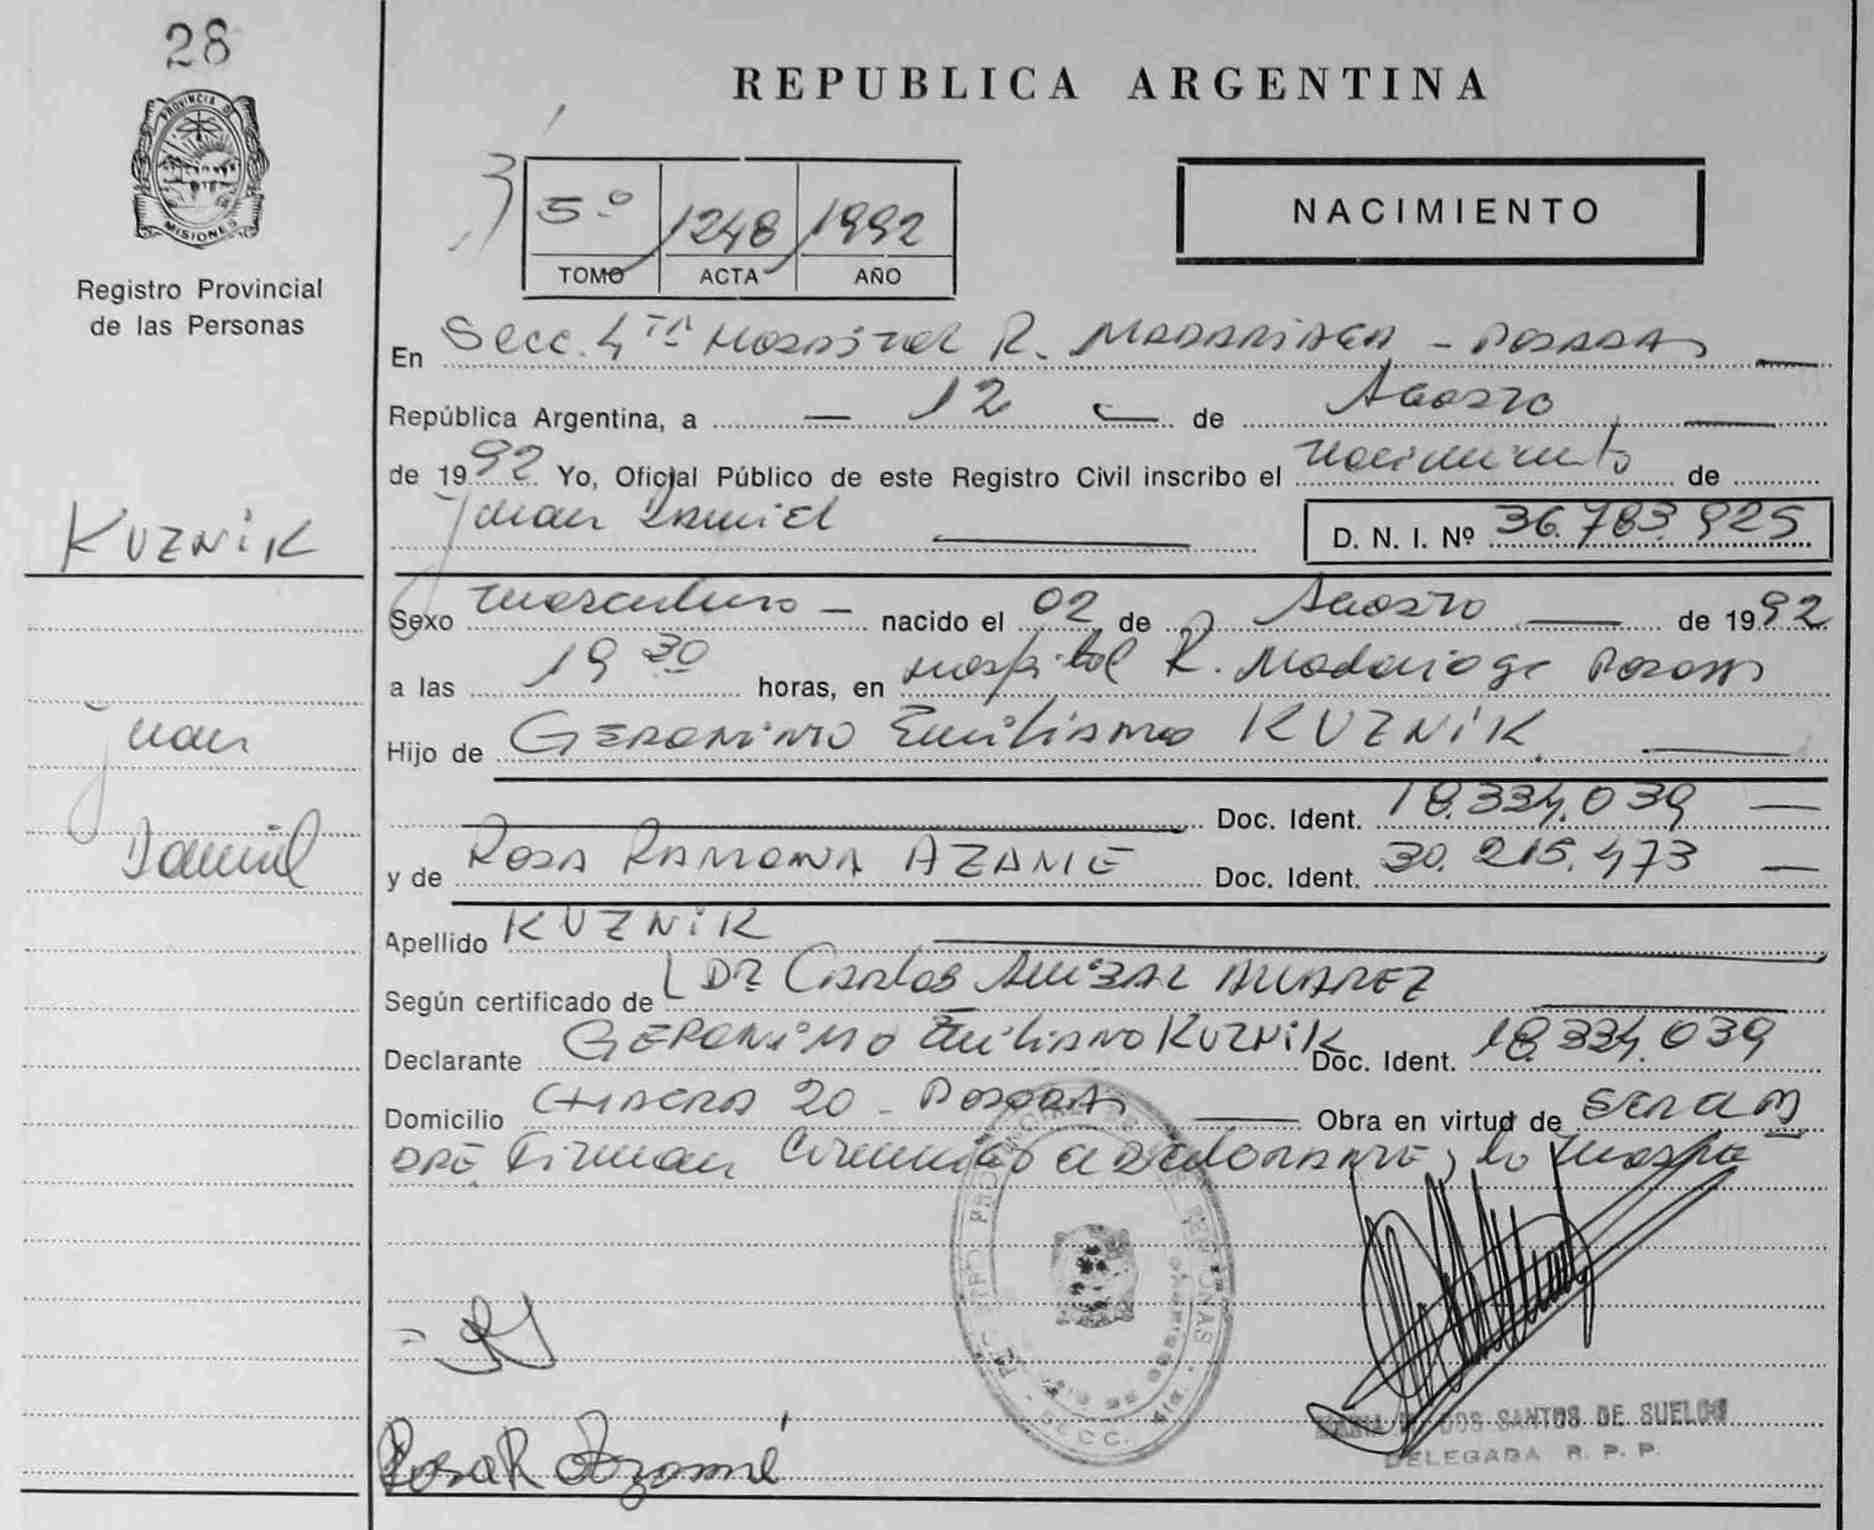 28
PROVINCIA D
MISIONES
Registro Provincial
de las Personas
REPUBLICA ARGENTINA
5º 1248 1992
TOMO ACTA AÑO
NACIMIENTO
En Secc. 4ta Hospital R. Madariaga - Posadas
República Argentina, a 12 de Agosto
de 1992 Yo, Oficial Público de este Registro Civil inscribo el nacimiento de
Kuznik
Juan Daniel D. N. I. Nº 36.783.925
Sexo masculino - nacido el 02 de Agosto de 1992
a las 19 30 horas, en Hospital R. Madariaga Posadas
Juan
Hijo de Geronimo Emiliano KUZNIK
Doc. Ident. 18.334.039
Daniel
y de Rosa Ramona AZAME Doc. Ident. 30.215.473
Apellido KUZNIK
Según certificado de DR Carlos Anibal ALVAREZ
Declarante Geronimo Emiliano KUZNIK Doc. Ident. 18.334.039
Domicilio Chacra 20 - Posadas Obra en virtud de
Firman declarante y la
Rosa R Azamé
DOS SANTOS DE SUELOS
DELEGADA R. P. P.